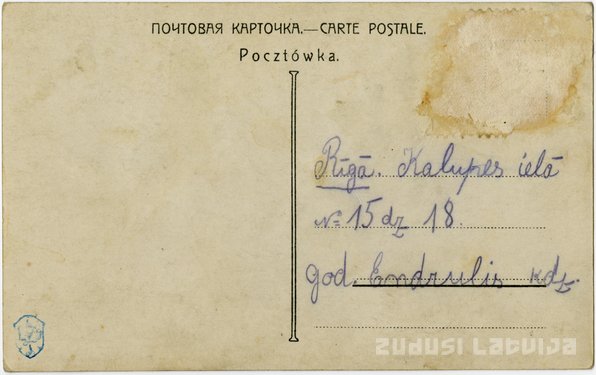 ПОЧТОВАЯ КАРТОЧКА.—CARTE POSTALE.
Pocztówka.
Rīgā. Kalupes ielā
№ 15 dz 18.
god. Endrulis kdz.
ZUDUSI LATVIJA